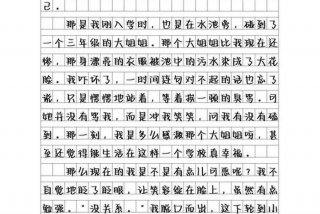 己。
那是我刚入学时，也是在水池旁，碰到了
一个三年级的大姐姐。那个大姐姐比我现在还
惨，那身漂亮的衣裙被池中的污水染成了大花
脸。我吓坏了，一时间连句对不起的话也忘了
说，只是愣愣地站着，等着挨一顿的臭骂。可
她并没有骂我，而是冲我笑笑，问我有没有碰
到。那一刻，我是多么感激那个大姐姐呀，甚
至还觉得能生活在这样一个学校真幸福。
那么现在的我是不是有点儿可恶呢？我不
自觉地眨了眨眼，让笑容绽在脸上，虽然有点
勉强。“没关系。”我脱口而出，这下轮到小